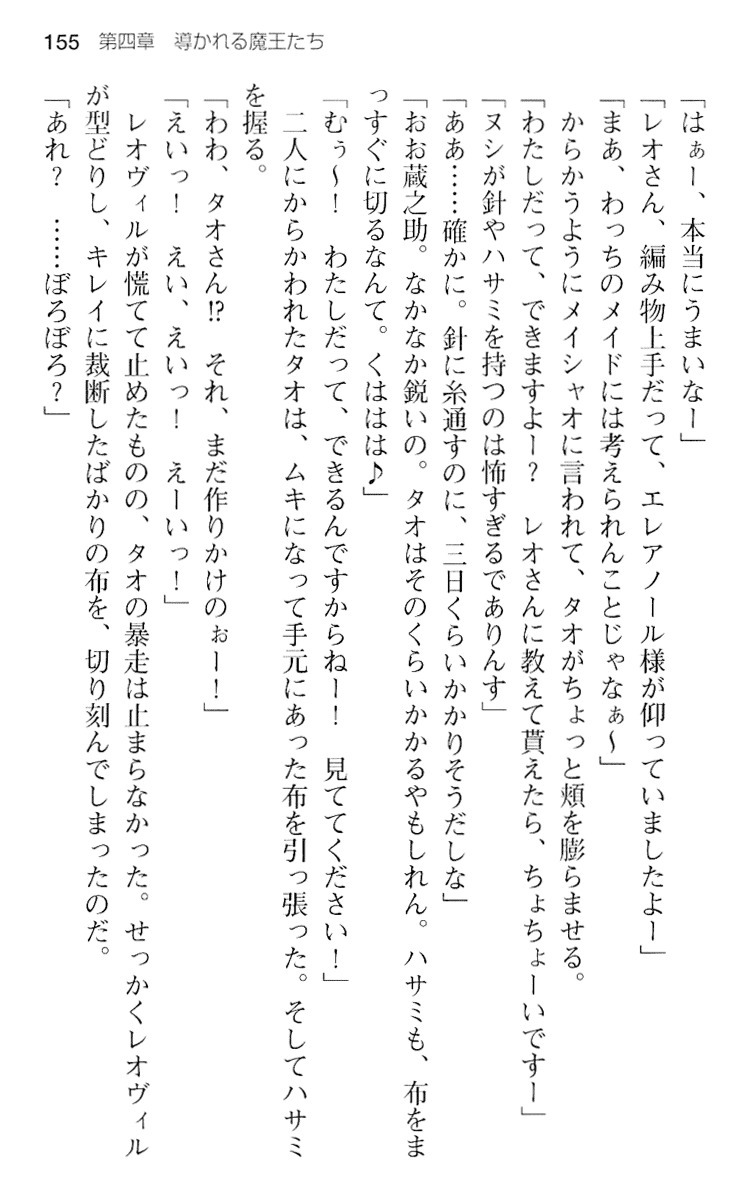 155 第四章　導かれる魔王たち
「はぁー、本当にうまいなー」
「レオさん、編み物上手だって、エレアノール様が仰っていましたよー」
「まあ、わっちのメイドには考えられんことじゃなぁ〜」
　からかうようにメイシャオに言われて、タオがちょっと頬を膨らませる。
「わたしだって、できますよー？　レオさんに教えて貰えたら、ちょちょーいですー」
「ヌシが針やハサミを持つのは怖すぎるでありんす」
「ああ……確かに。針に糸通すのに、三日くらいかかりそうだしな」
「おお蔵之助。なかなか鋭いの。タオはそのくらいかかるやもしれん。ハサミも、布をま
っすぐに切るなんて。くははは♪」
「むぅ〜！　わたしだって、できるんですからねー！　見ててください！」
　二人にからかわれたタオは、ムキになって手元にあった布を引っ張った。そしてハサミ
を握る。
「わわ、タオさん⁉　それ、まだ作りかけのぉー！」
「えいっ！　えい、えいっ！　えーいっ！」
　レオヴィルが慌てて止めたものの、タオの暴走は止まらなかった。せっかくレオヴィル
が型どりし、キレイに裁断したばかりの布を、切り刻んでしまったのだ。
「あれ？　……ぼろぼろ？」